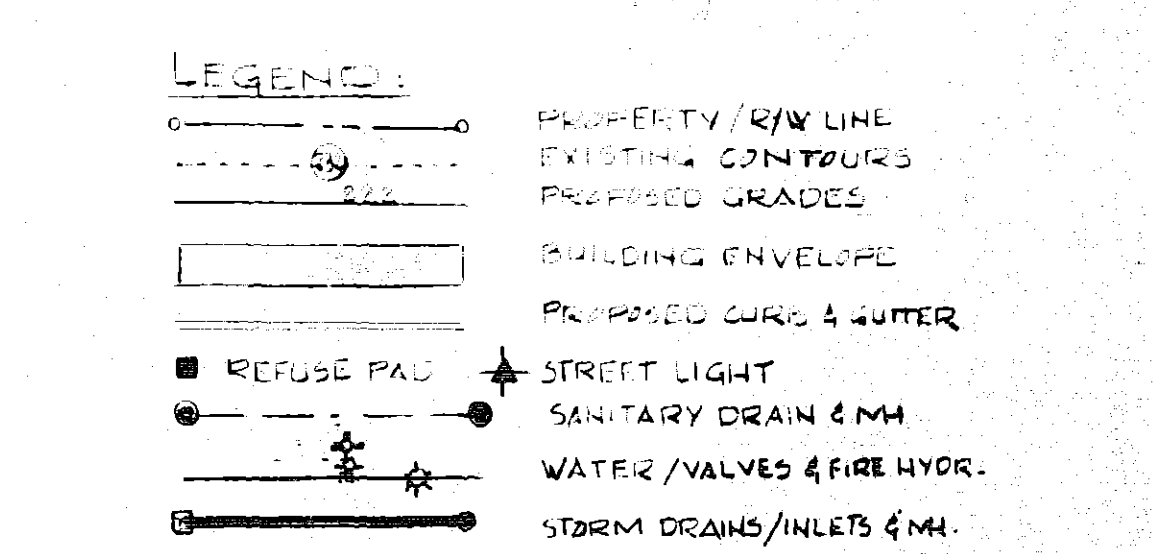 LEGEND:
PROPERTY/R/W LINE
EXISTING CONTOURS
222
PROPOSED GRADES
BUILDING ENVELOPE
PROPOSED CURB & GUTTER
REFUSE PAD STREET LIGHT
SANITARY DRAIN & MH
WATER/VALVES & FIRE HYDR.
STORM DRAINS/INLETS & MH.